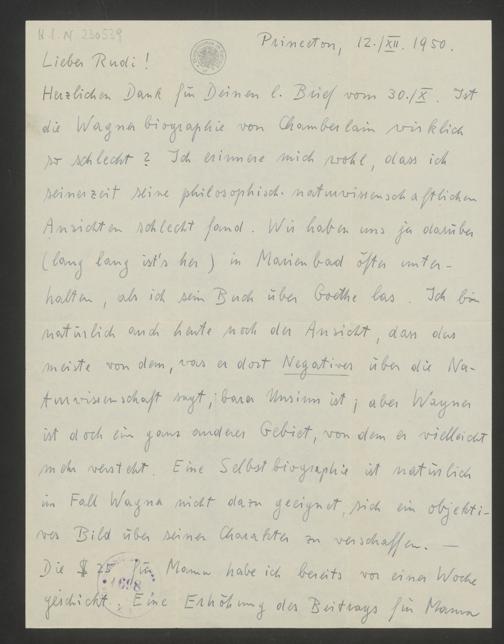 H.I.N. 230539
Princeton, 12./XII. 1950.
Lieber Rudi!
Herzlichen Dank für Deinen l. Brief vom 30./X. Ist
die Wagnerbiographie von Chamberlain wirklich
so schlecht? Ich erinnere mich wohl, dass ich
seinerzeit seine philosophisch-naturwissenschaftlichen
Ansichten schlecht fand. Wir haben uns ja darüber
(lang lang ist's her) in Marienbad öfter unter-
halten, als ich sein Buch über Goethe las. Ich bin
natürlich auch heute noch der Ansicht, dass das
meiste von dem, was er dort Negatives über die Na-
turwissenschaft sagt, barer Unsinn ist; aber Wagner
ist doch ein ganz anderes Gebiet, von dem er vielleicht
mehr versteht. Eine Selbstbiographie ist natürlich
im Fall Wagner nicht dazu geeignet, sich ein objekti-
ves Bild über seinen Charakter zu verschaffen. —
Die $ 75 für Mama habe ich bereits vor einer Woche
geschickt. Eine Erhöhung des Beitrags für Mama